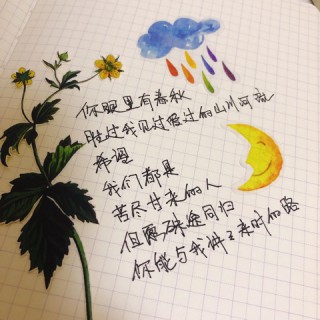 你眼里有春秋
胜过我见过爱过的山川河流
希望
我们都是
苦尽甘来的人
但愿殊途同归
你能与我讲讲来时的路